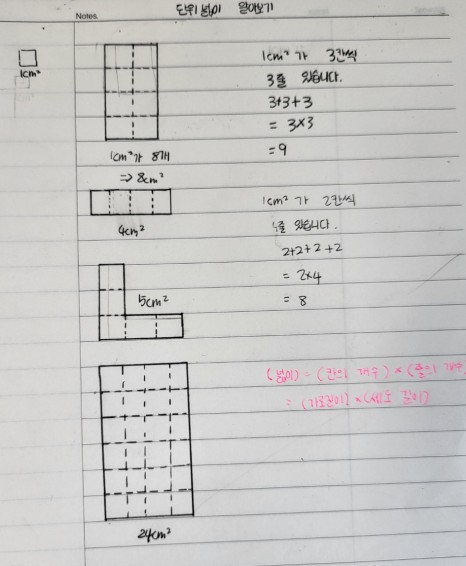 단위넓이 알아보기
Notes.
1cm²
1cm²가 8개
⇒ 8cm²
4cm²
5cm²
24cm²
1cm² 가 3칸씩
3줄 있습니다.
3+3+3
= 3×3
= 9
1cm² 가 2칸씩
4줄 있습니다.
2+2+2+2
= 2×4
= 8
(넓이) = (칸의 개수) × (줄의 개수
= (가로길이) × (세로 길이)